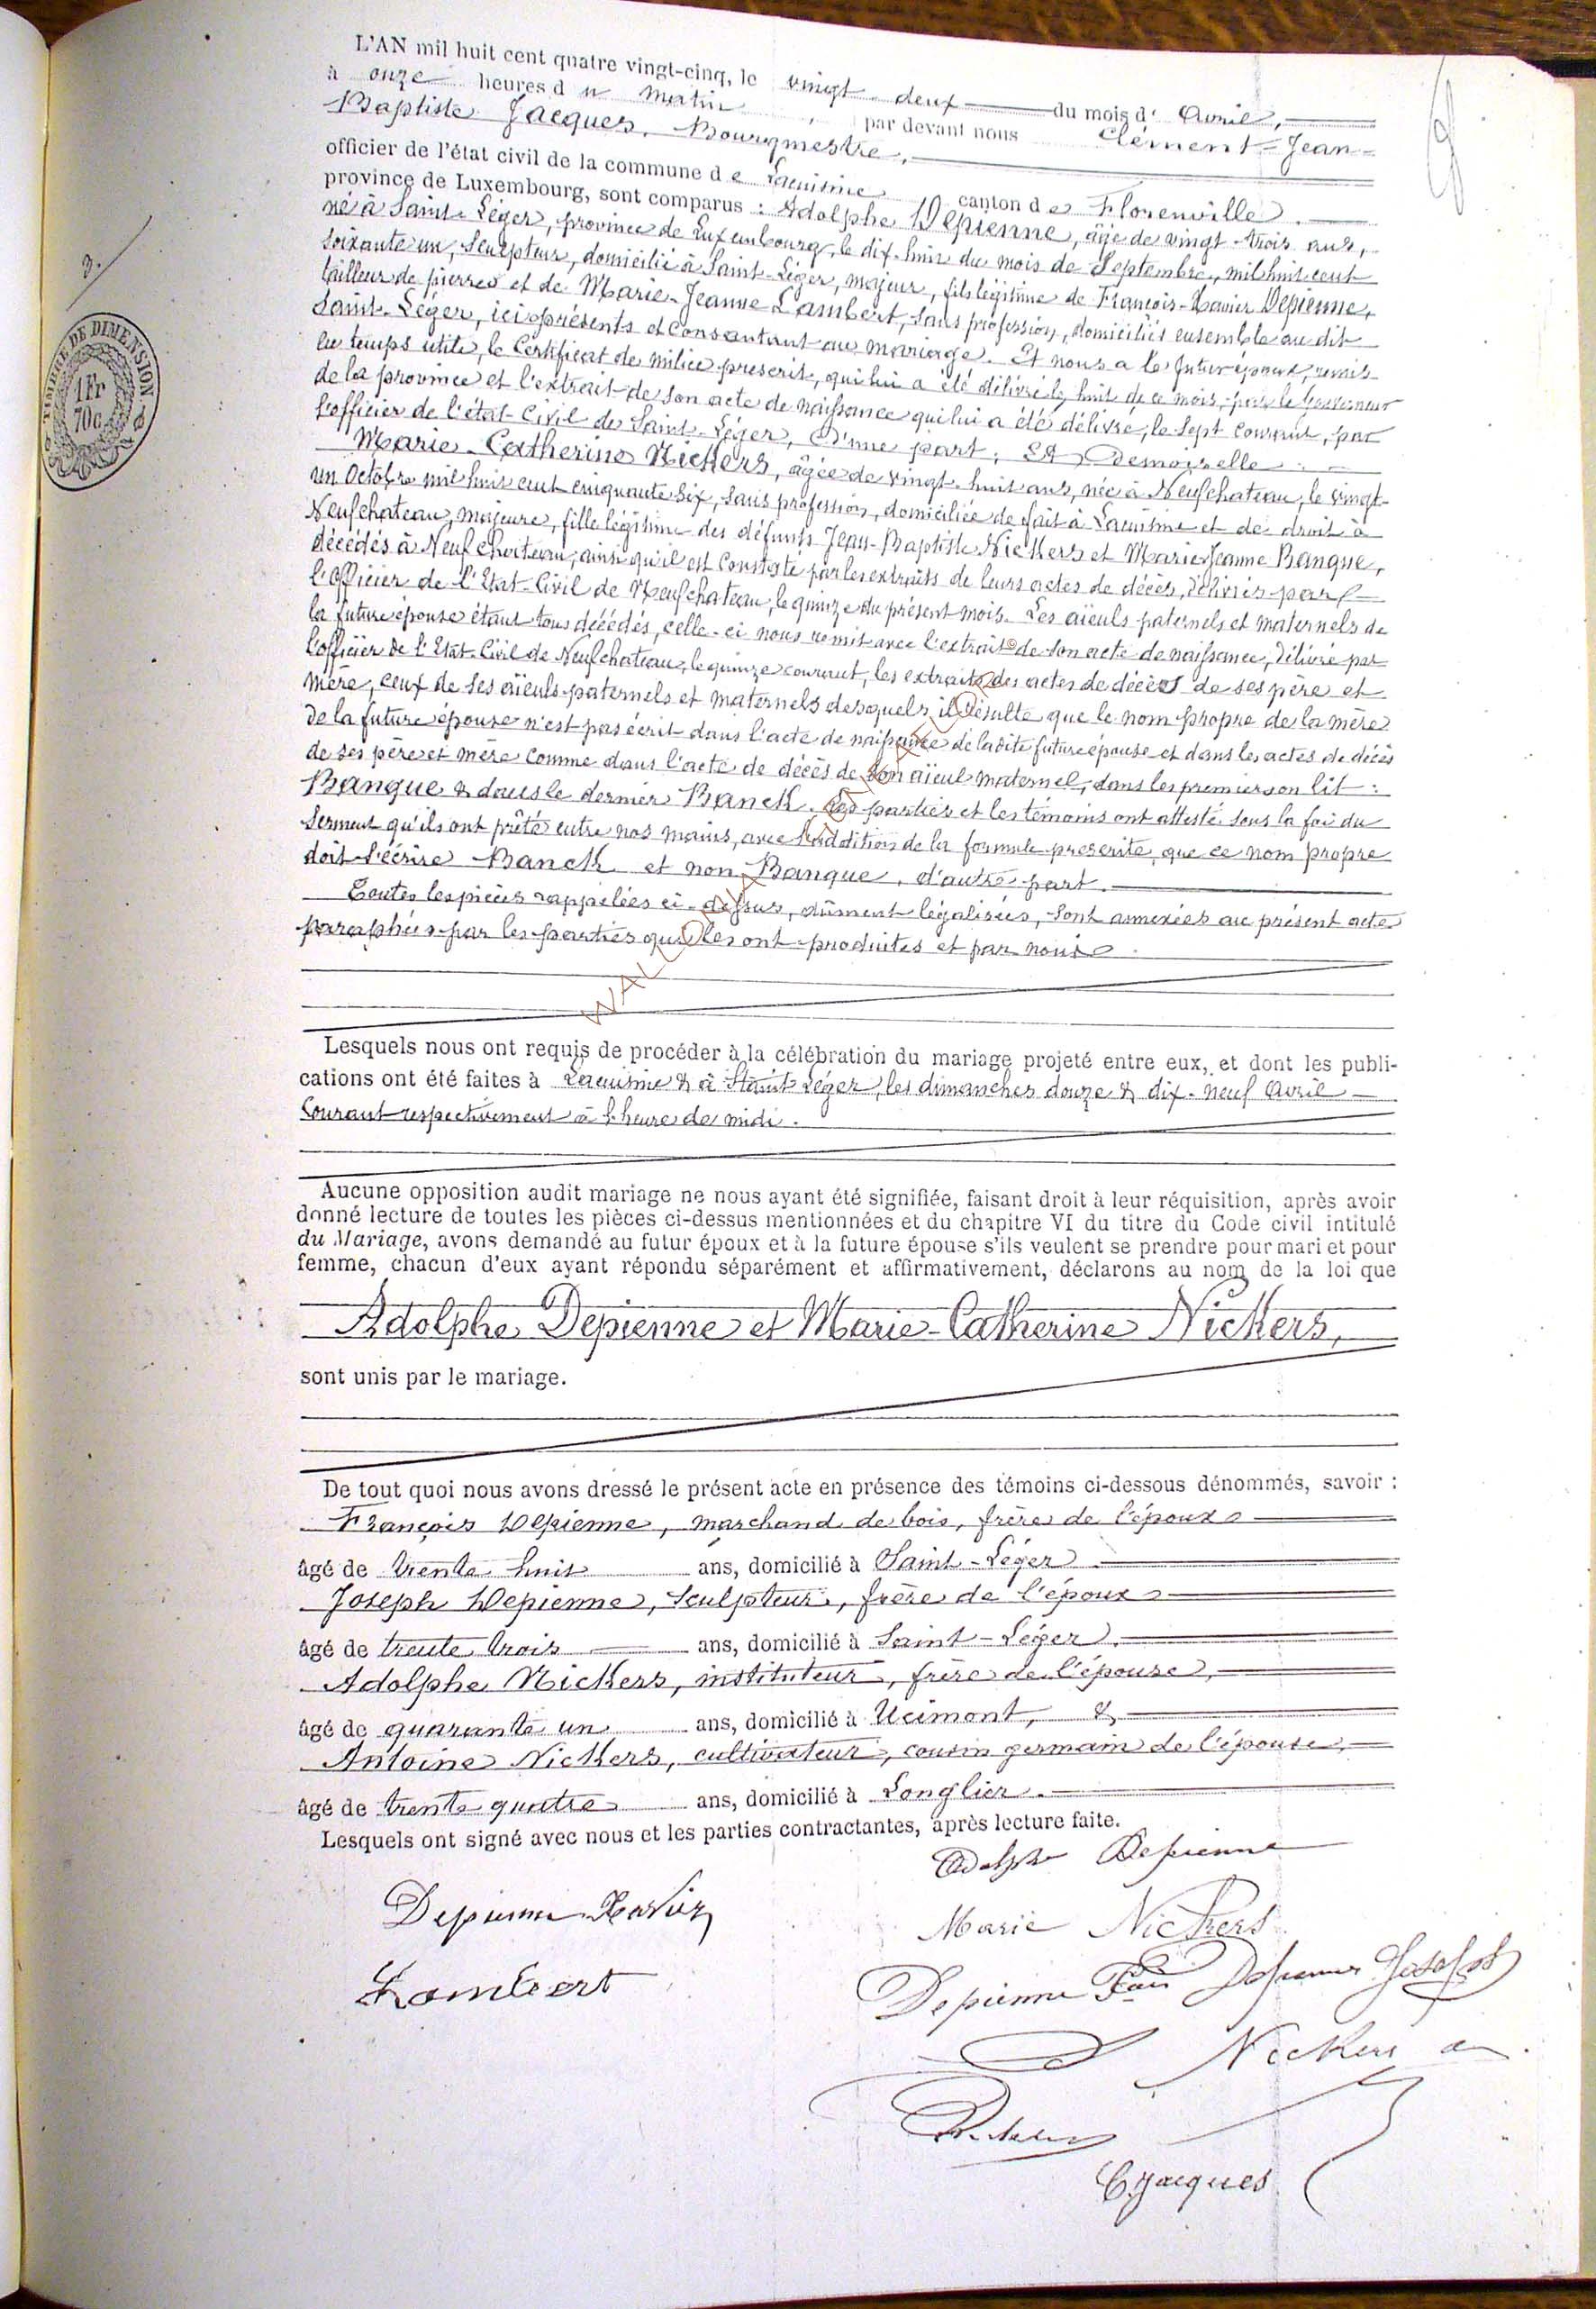 L'AN mil huit cent quatre vingt-cinq, le vingt-deux du mois d' Avril,
à onze heures du matin, par devant nous Clément-Jean-
Baptiste Jacques, Bourgmestre,
officier de l'état civil de la commune de Lacuisine canton de Florenville.
province de Luxembourg, sont comparus : Adolphe Depienne, âgé de vingt-trois ans,
né à Saint-Léger, province de Luxembourg, le dix-huit du mois de Septembre, mil huit cent
soixante un, sculpteur, domicilié à Saint-Léger, majeur, fils légitime de François-Xavier Depienne,
tailleur de pierres et de Marie-Jeanne Lambert, sans profession, domiciliés ensemble au dit
Saint-Léger, ici présents et consentant au mariage. Et nous a le futur époux, remis
en temps utile, le Certificat de milice prescrit, qui lui a été délivré le huit de ce mois, par le Gouverneur
de la province et l'extrait de son acte de naissance qui lui a été délivré, le sept courant, par
l'officier de l'état-Civil de Saint-Léger, D'une part; Et Demoiselle :
Marie-Catherine Nickers, âgée de vingt-huit ans, née à Neufchateau, le vingt-
un Octobre mil huit cent cinquante six, sans profession, domiciliée de fait à Lacuisine et de droit à
Neufchateau, majeure, fille légitime des défunts Jean-Baptiste Nickers et Marie-Jeanne Banque,
décédés à Neufchateau, ainsi qu'il est constaté par les extraits de leurs actes de décès, délivrés par
l'Officier de l'Etat-Civil de Neufchateau, le quinze du présent mois. Les aïeuls paternels et maternels de
la future épouse étant tous décédés, celle-ci nous remit avec l'extrait de son acte de naissance, délivré par
l'officier de l'Etat-Civil de Neufchateau, le quinze courant, les extraits des actes de décès de ses père et
mère, ceux de ses aïeuls paternels et maternels desquels il résulte que le nom propre de la mère
de la future épouse n'est pas écrit dans l'acte de naissance de la dite future épouse et dans les actes de décès
de ses père et mère comme dans l'acte de décès de son aïeul maternel, dans les premiers on lit :
Banque & dans le dernier Banck. Les parties et les témoins ont attesté sous la foi du
serment qu'ils ont prêté entre nos mains, avec l'addition de la formule prescrite, que ce nom propre
doit s'écrire Banck et non Banque, d'autre part.
Toutes les pièces rappelées ci-dessus, dûment légalisées, sont annexées au présent acte
paraphées par les parties qui les ont produites et par nous.
WALLONIA
Lesquels nous ont requis de procéder à la célébration du mariage projeté entre eux, et dont les publi-
cations ont été faites à Lacuisine & à Saint Léger, les dimanches douze & dix-neuf Avril
Courant respectivement à l'heure de midi.
Aucune opposition audit mariage ne nous ayant été signifiée, faisant droit à leur réquisition, après avoir
donné lecture de toutes les pièces ci-dessus mentionnées et du chapitre VI du titre du Code civil intitulé
du Mariage, avons demandé au futur époux et à la future épouse s'ils veulent se prendre pour mari et pour
femme, chacun d'eux ayant répondu séparément et affirmativement, déclarons au nom de la loi que
Adolphe Depienne et Marie-Catherine Nickers,
sont unis par le mariage.
De tout quoi nous avons dressé le présent acte en présence des témoins ci-dessous dénommés, savoir :
François Depienne, marchand de bois, frère de l'époux
âgé de trente huit ans, domicilié à Saint-Léger
Joseph Depienne, sculpteur, frère de l'époux
âgé de trente trois ans, domicilié à Saint-Léger.
Adolphe Nickers, instituteur, frère de l'épouse,
âgé de quarante un ans, domicilié à Ucimont, &
Antoine Nickers, cultivateur, cousin germain de l'épouse,
âgé de trente quatre ans, domicilié à Longlier.
Lesquels ont signé avec nous et les parties contractantes, après lecture faite.
Adolphe Depienne
Depienne Xavier
Marie Nickers
Lambert
Depienne Fois Depienne Joseph
Nickers
C. Jacques
3.
TIMBRE DE DIMENSION
1 Fr
70c